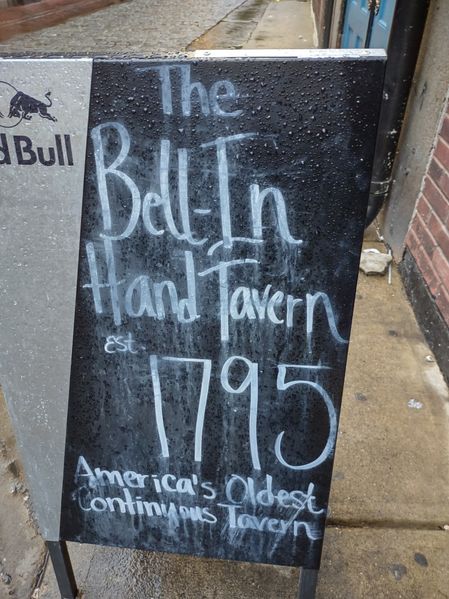 d Bull
The
Bell-In
Hand Tavern
est.
1795
America's Oldest
Continuous Tavern